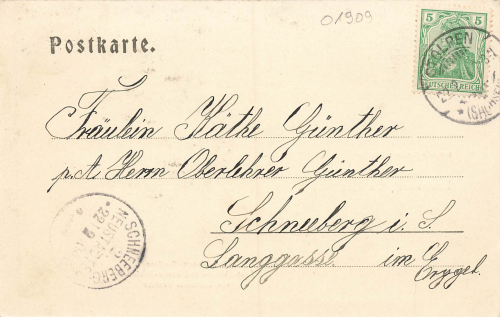 01909
Postkarte.
5 5
DEUTSCHES REICH
STOLPEN
(SACHS)
Fräulein Käthe Günther
p. A. Herrn Oberlehrer Günther
Schneeberg i. S.
Langgasse im Erzgeb.
SCHNEEBERG
NEUST
22 2